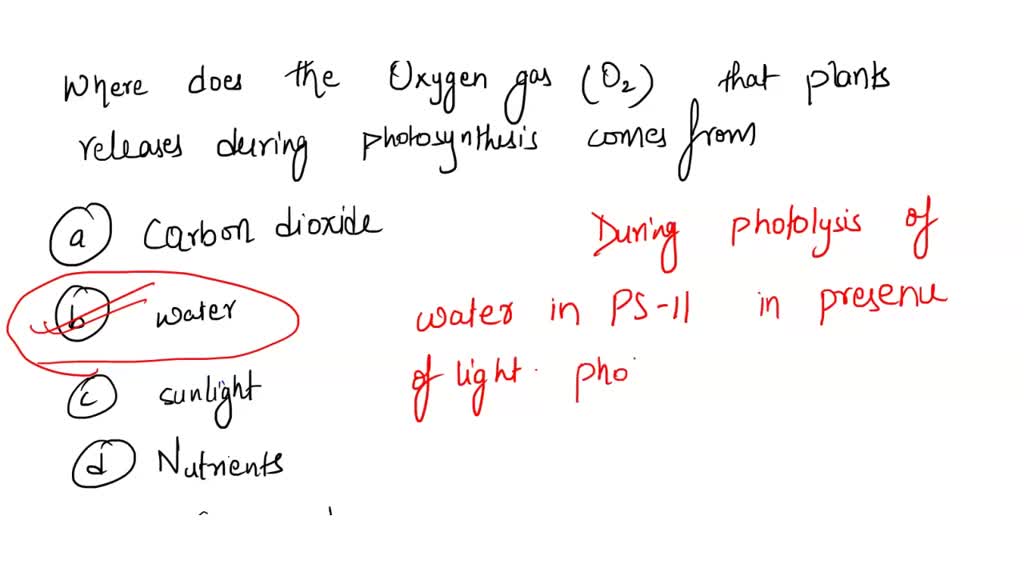 Where does the Oxygen gas (O2) that plants
releases during photosynthesis comes from
a Carbon dioxide
b water
c sunlight
d Nutrients
During photolysis of
water in PS-II in presenu
of light. pho